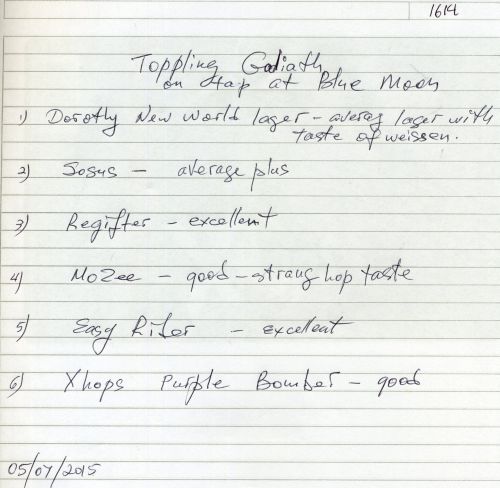 1614
Toppling Goliath
on tap at Blue Moon
1) Dorothy New World lager - averag lager with
taste of weissen.
2) Sosus - average plus
3) Regifter - excellent
4) MoZee - good - strong hop taste
5) Easy Rider - excellent
6) Xhops Purple Bomber - good
05/07/2015